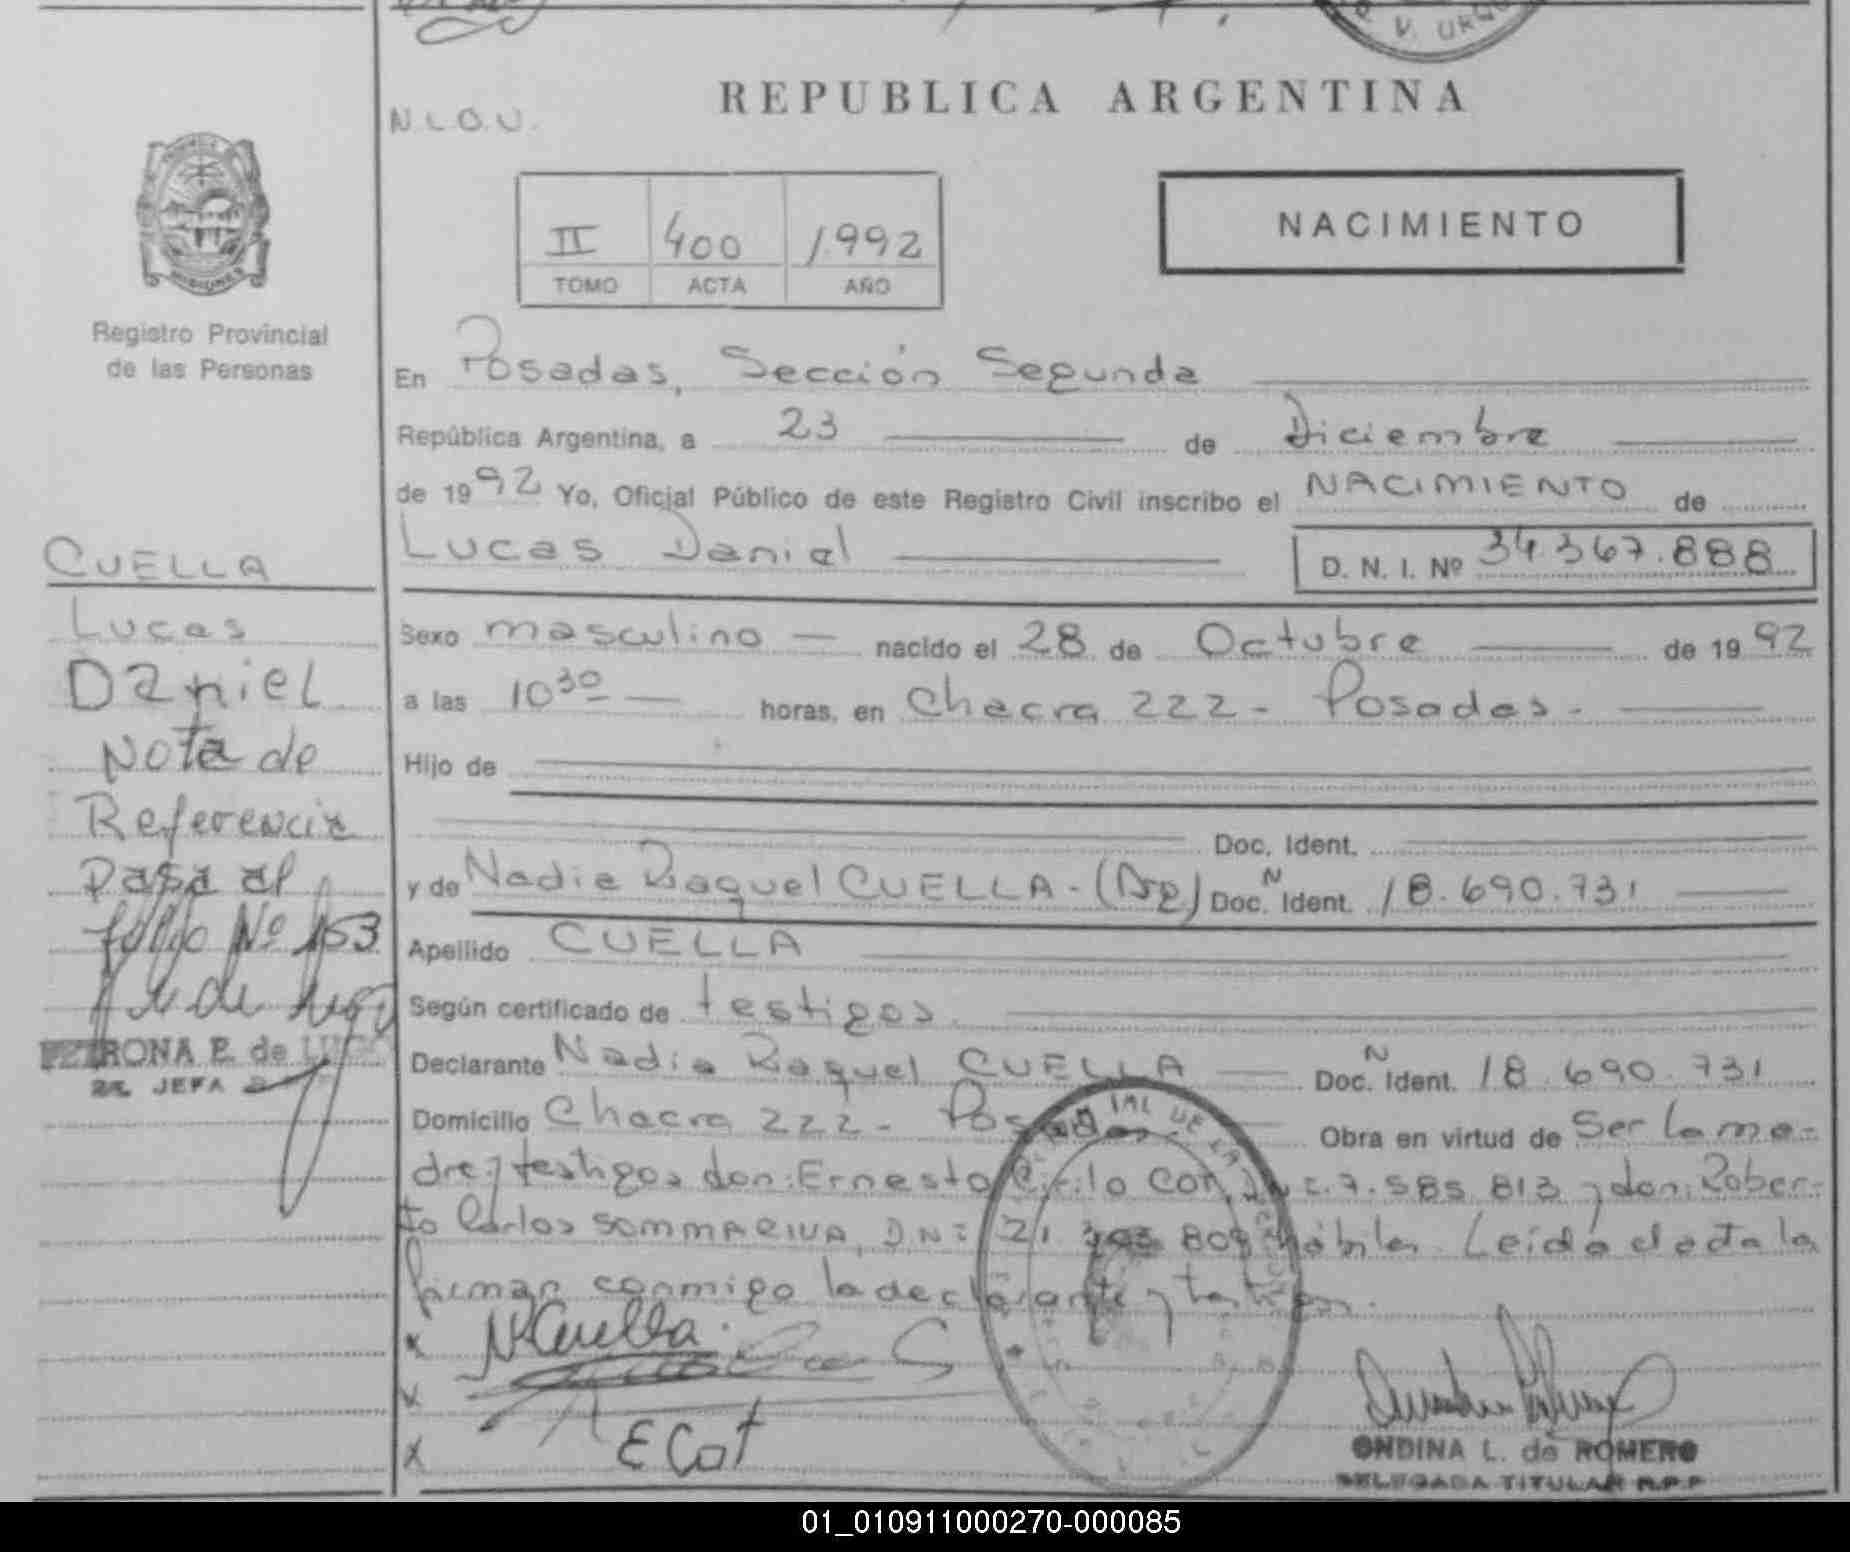 V. URQU
REPUBLICA ARGENTINA
N.L.O.U.
MISIONES
Registro Provincial
de las Personas
II 400 1992
TOMO ACTA AÑO
NACIMIENTO
En Posadas, Sección Segunda
República Argentina, a 23 de Diciembre
de 1992 Yo, Oficial Público de este Registro Civil inscribo el NACIMIENTO de
Lucas Daniel D. N. I. Nº 34.367.888
Sexo masculino nacido el 28 de Octubre de 1992
a las 10 30 horas, en Chacra 222 - Posadas -
Hijo de
Doc. Ident.
y de Nadia Raquel CUELLA - (Arg) Doc. N Ident. 18.690.731
Apellido CUELLA
Según certificado de testigos
Declarante Nadia Raquel CUELLA Doc. N Ident. 18.690.731
Domicilio Chacra 222 - Posadas Obra en virtud de Ser la ma-
dre y testigos don: Ernesto Cirilo 7.585.813 y don: Rober-
to Carlos SOMMARIVA, DNI 21 hábiles. Leída el acta la
firman conmigo la declarante y testigos.
x N Cuella
x
x E Cot
ONDINA L. de ROMERO
DELEGADA TITULAR R.P.P
CUELLA
Lucas
Daniel
Nota de
Referencia
Pasa al
folio Nº 153
PETRONA E. de
JEFA
01_010911000270-000085